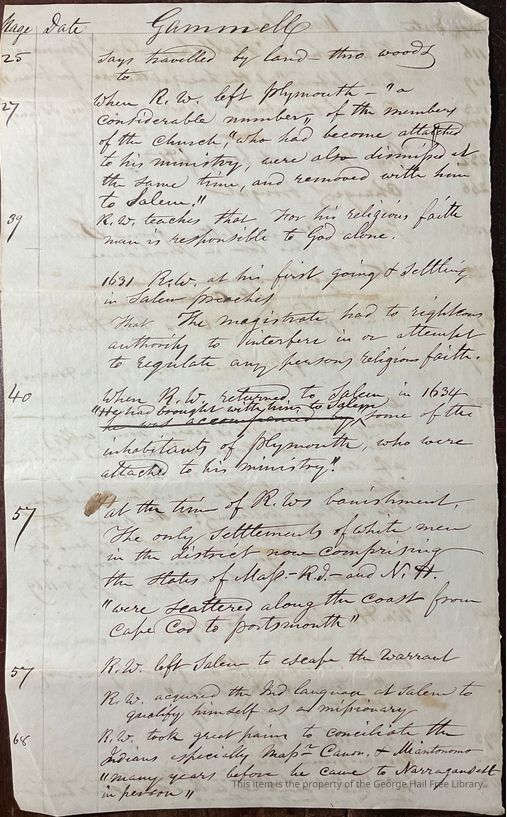 Page Date Gammell
25 says travelled by land - thro woods
to
27 When R.W. left Plymouth - "a
considerable number, of the members
of the church, "who had become attatched
to his ministry, were also dismissed at
the same time, and removed with him
to Salem."
39 R.W. teaches that For his religious faith
man is responsible to God alone.
1631 R.W. at his first going & settling
in Salem preaches
That The magistrate had to righteous
authority to interfere in or attempt
to regulate any persons religious faith.
40 When R.W. returned to Salem, in 1634
"He had brought with him, to Salem,
he was accompanied by some of the
inhabitants of Plymouth, who were
attached to his ministry".
57 at the time of R.Ws banishment,
The only settlements of white men
in the district now comprising
the States of Mass.- R.I.- and N. H.
"were scattered along the coast from
Cape Cod to Portsmouth"
57 R.W. left Salem to escape the warrant
R.W. acquired the Ind language at Salem to
qualify himself as a missionary
68 R.W. took great pains to conciliate the
Indians especially Mass.t Canon. & Miantonomo
"many years before he came to Narragansett
in person"
This item is the property of the George Hail Free Library.